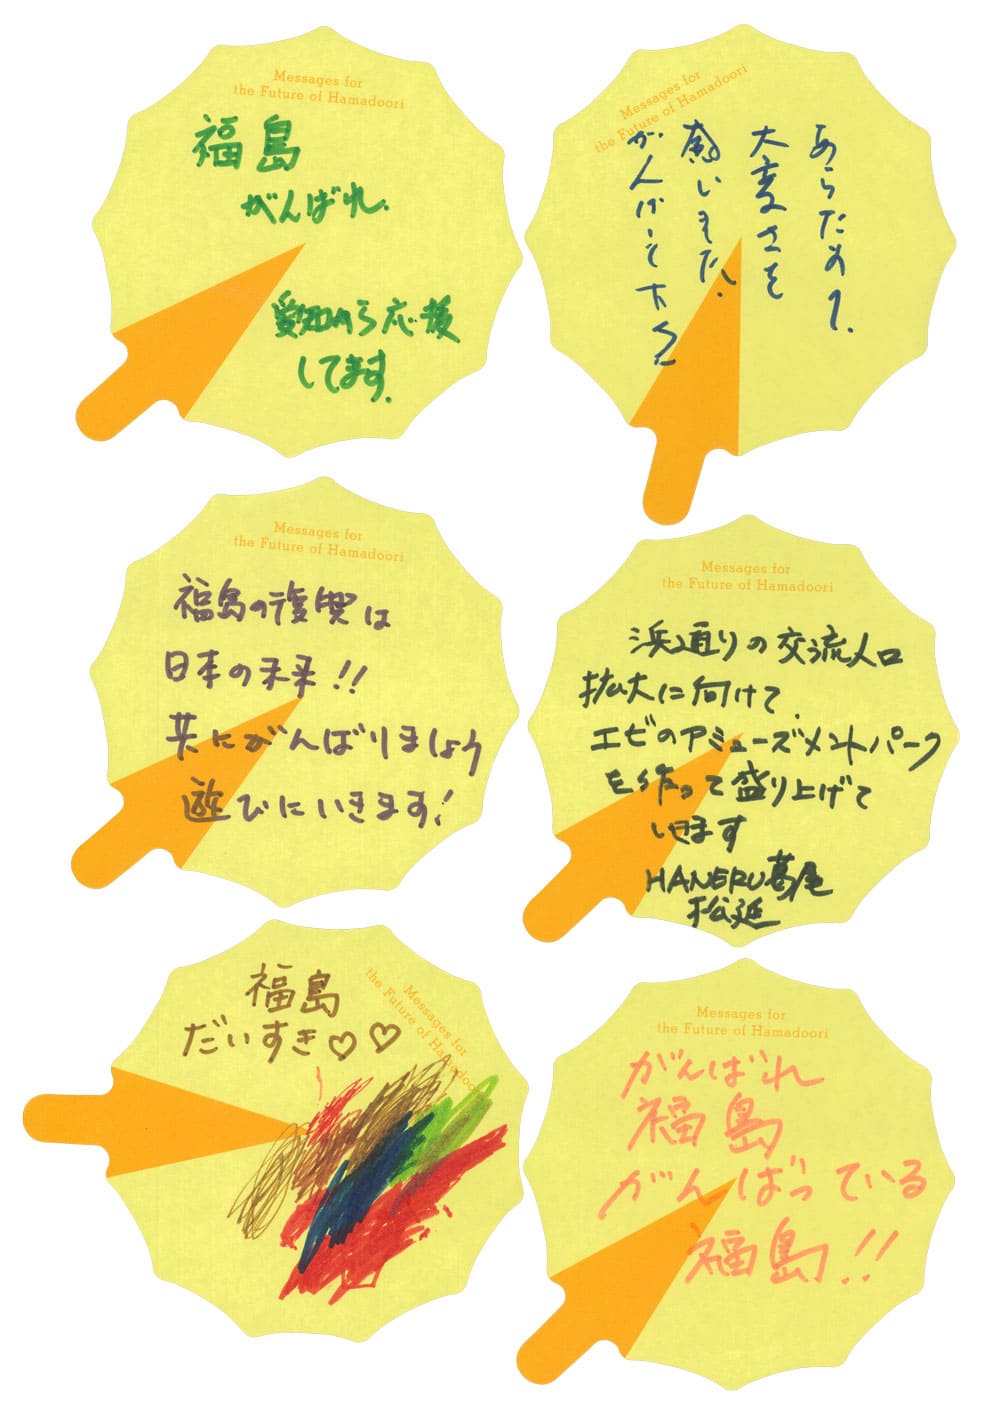 Messages for
the Future of Hamadoori
福島
がんばれ.
愛知から応援
してます.
Messages for
the Future of Hamadoori
あらためて.
大変さを
感じました.
がんばって下さい
Messages for
the Future of Hamadoori
福島の復興は
日本の未来!!
共にがんばりましょう
遊びにいきます!
Messages for
the Future of Hamadoori
浜通りの交流人口
拡大に向けて.
エビのアミューズメントパーク
を作って盛り上げて
いきます
HANERU葛尾
松延
Messages for
the Future of Hamadoori
福島
だいすき♡♡
Messages for
the Future of Hamadoori
がんばれ
福島
がんばっている
福島!!